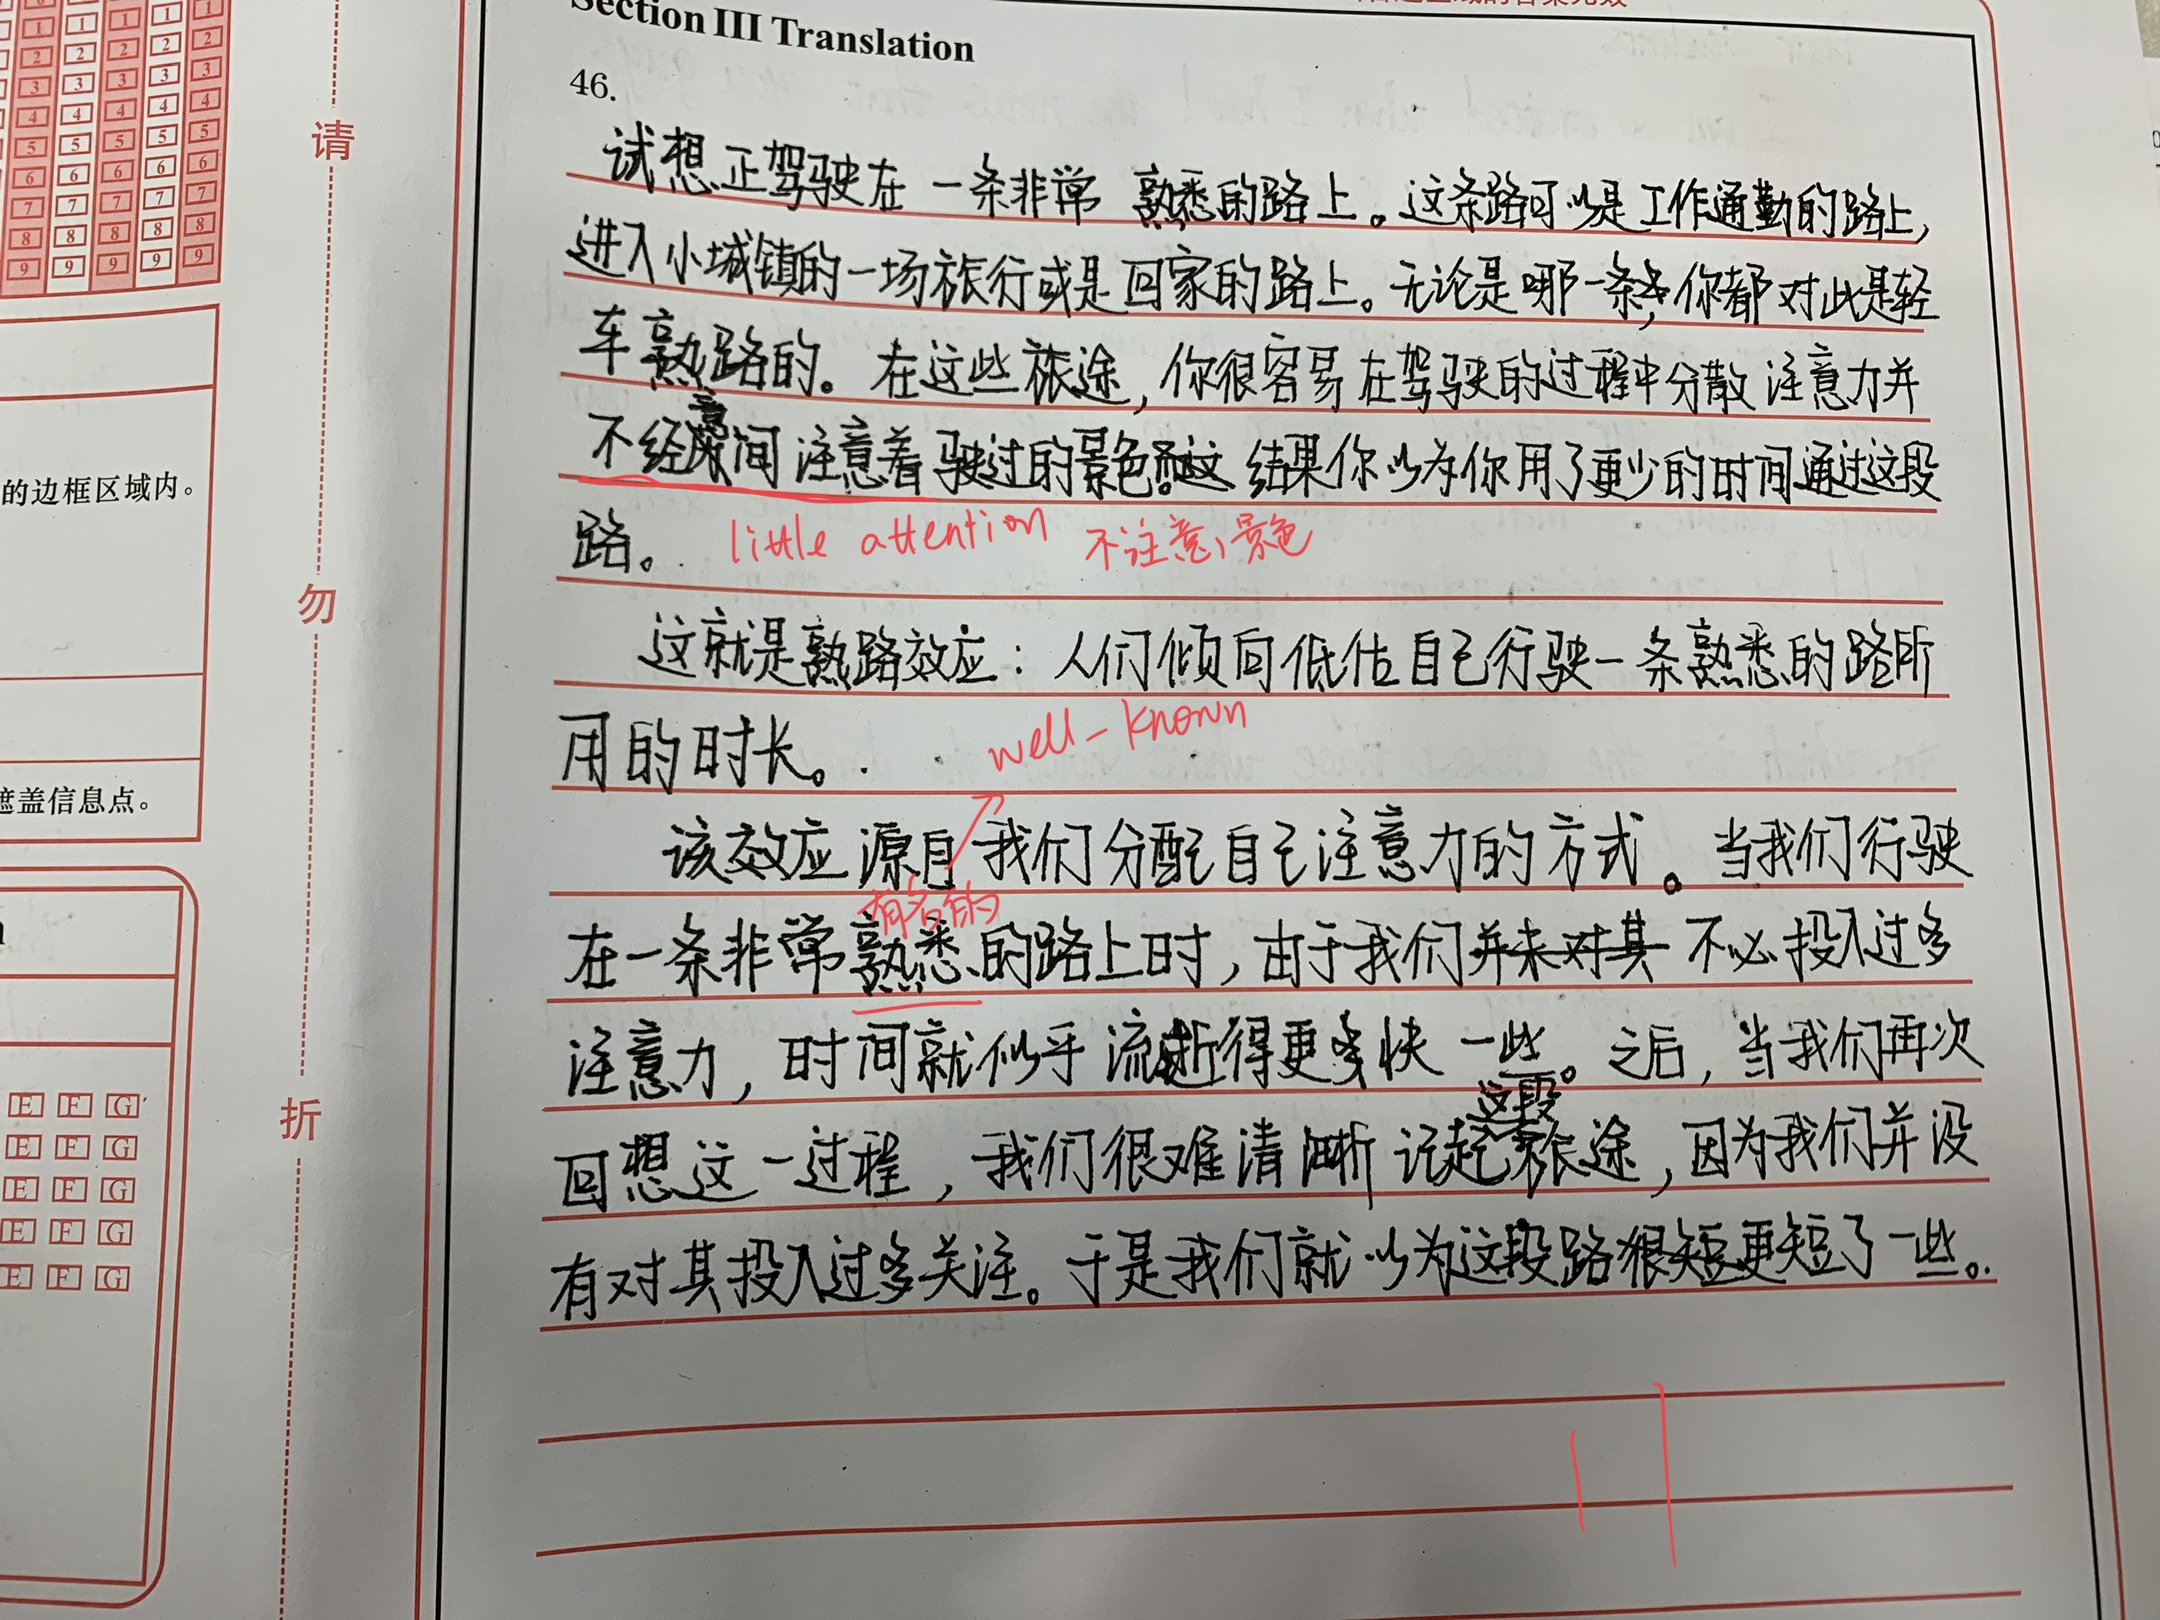 Section III Translation
46.
试想正驾驶在一条非常熟悉的路上。这条路可以是工作通勤的路上,
进入小城镇的一场旅行或是回家的路上。无论是哪一条,你都对此是轻
车熟路的。在这些旅途,你很容易在驾驶的过程中分散注意力并
不经意间注意着驶过的景色。结果你以为你用了更少的时间通过这段
路。
little attention 不注意景色
这就是熟路效应:人们倾向低估自己行驶一条熟悉的路所
用的时长。
well-known
该效应源自我们分配自己注意力的方式。当我们行驶
有名的
在一条非常熟悉的路上时,由于我们并未对其不必投入过多
注意力,时间就似乎流逝得更快一些。之后,当我们再次
这段
回想这一过程,我们很难清晰记起旅途,因为我们并没
有对其投入过多关注。于是我们就以为这段路很短更短了一些。
11
请
勿
折
的边框区域内。
遮盖信息点。
1 1 1 2 2
2 2 2 3 3
3 3 3
4 4 4 4
5 5 5 5
6 6 6 6 6
7 7 7 7 7
8 8 8 8 8
9 9 9 9 9
E F G
E F G
E F G
E F G
E F G